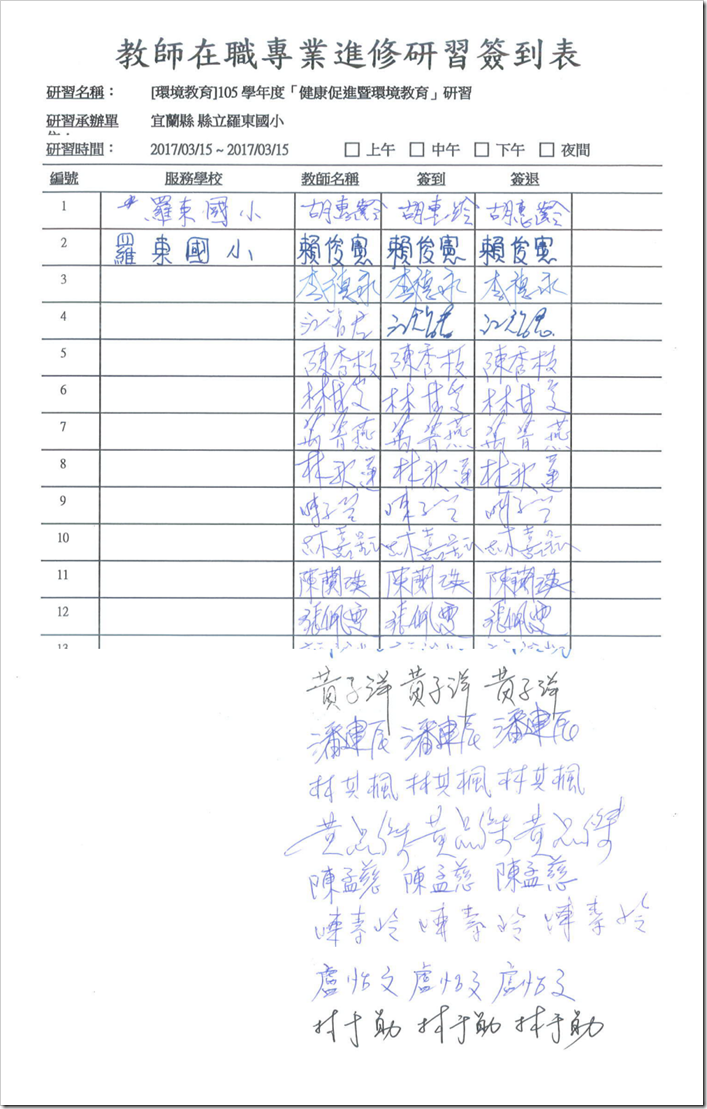 教師在職專業進修研習簽到表
研習名稱： [環境教育]105 學年度「健康促進暨環境教育」研習
研習承辦單 宜蘭縣 縣立羅東國小
研習時間： 2017/03/15 ~ 2017/03/15 □ 上午 □ 中午 □ 下午 □ 夜間
編號 服務學校 教師名稱 簽到 簽退
1 羅東國小 胡惠齡 胡惠玲 胡惠齡
2 羅東國小 賴俊憲 賴俊憲 賴俊憲
3 李德永 李德永 李德永
4
5 陳香枝 陳香枝 陳香枝
6 林甘 林甘 林甘
7 菁燕 菁燕 菁燕
8 林秋蓮 林秋蓮 林秋蓮
9 陳 陳 陳
10 林嘉 林嘉 林嘉
11 陳蘭瑛 陳蘭瑛 陳蘭瑛
12 張佩雯 張佩雯 張佩雯
13
黃子洋 黃子洋 黃子洋
潘建辰 潘建辰 潘建辰
林其楓 林其楓 林其楓
黃品傑 黃品傑 黃品傑
陳孟慈 陳孟慈 陳孟慈
陳素玲 陳素玲 陳素玲
盧怡文 盧怡文 盧怡文
林于勛 林于勛 林于勛